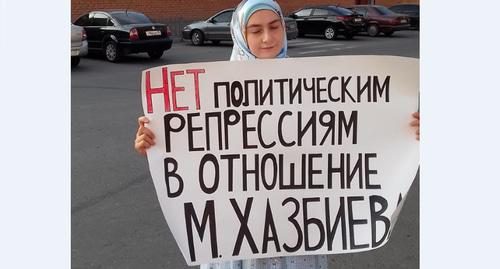 НЕТ ПОЛИТИЧЕСКИМ
РЕПРЕССИЯМ
В ОТНОШЕНИЕ
М. ХАЗБИЕВ